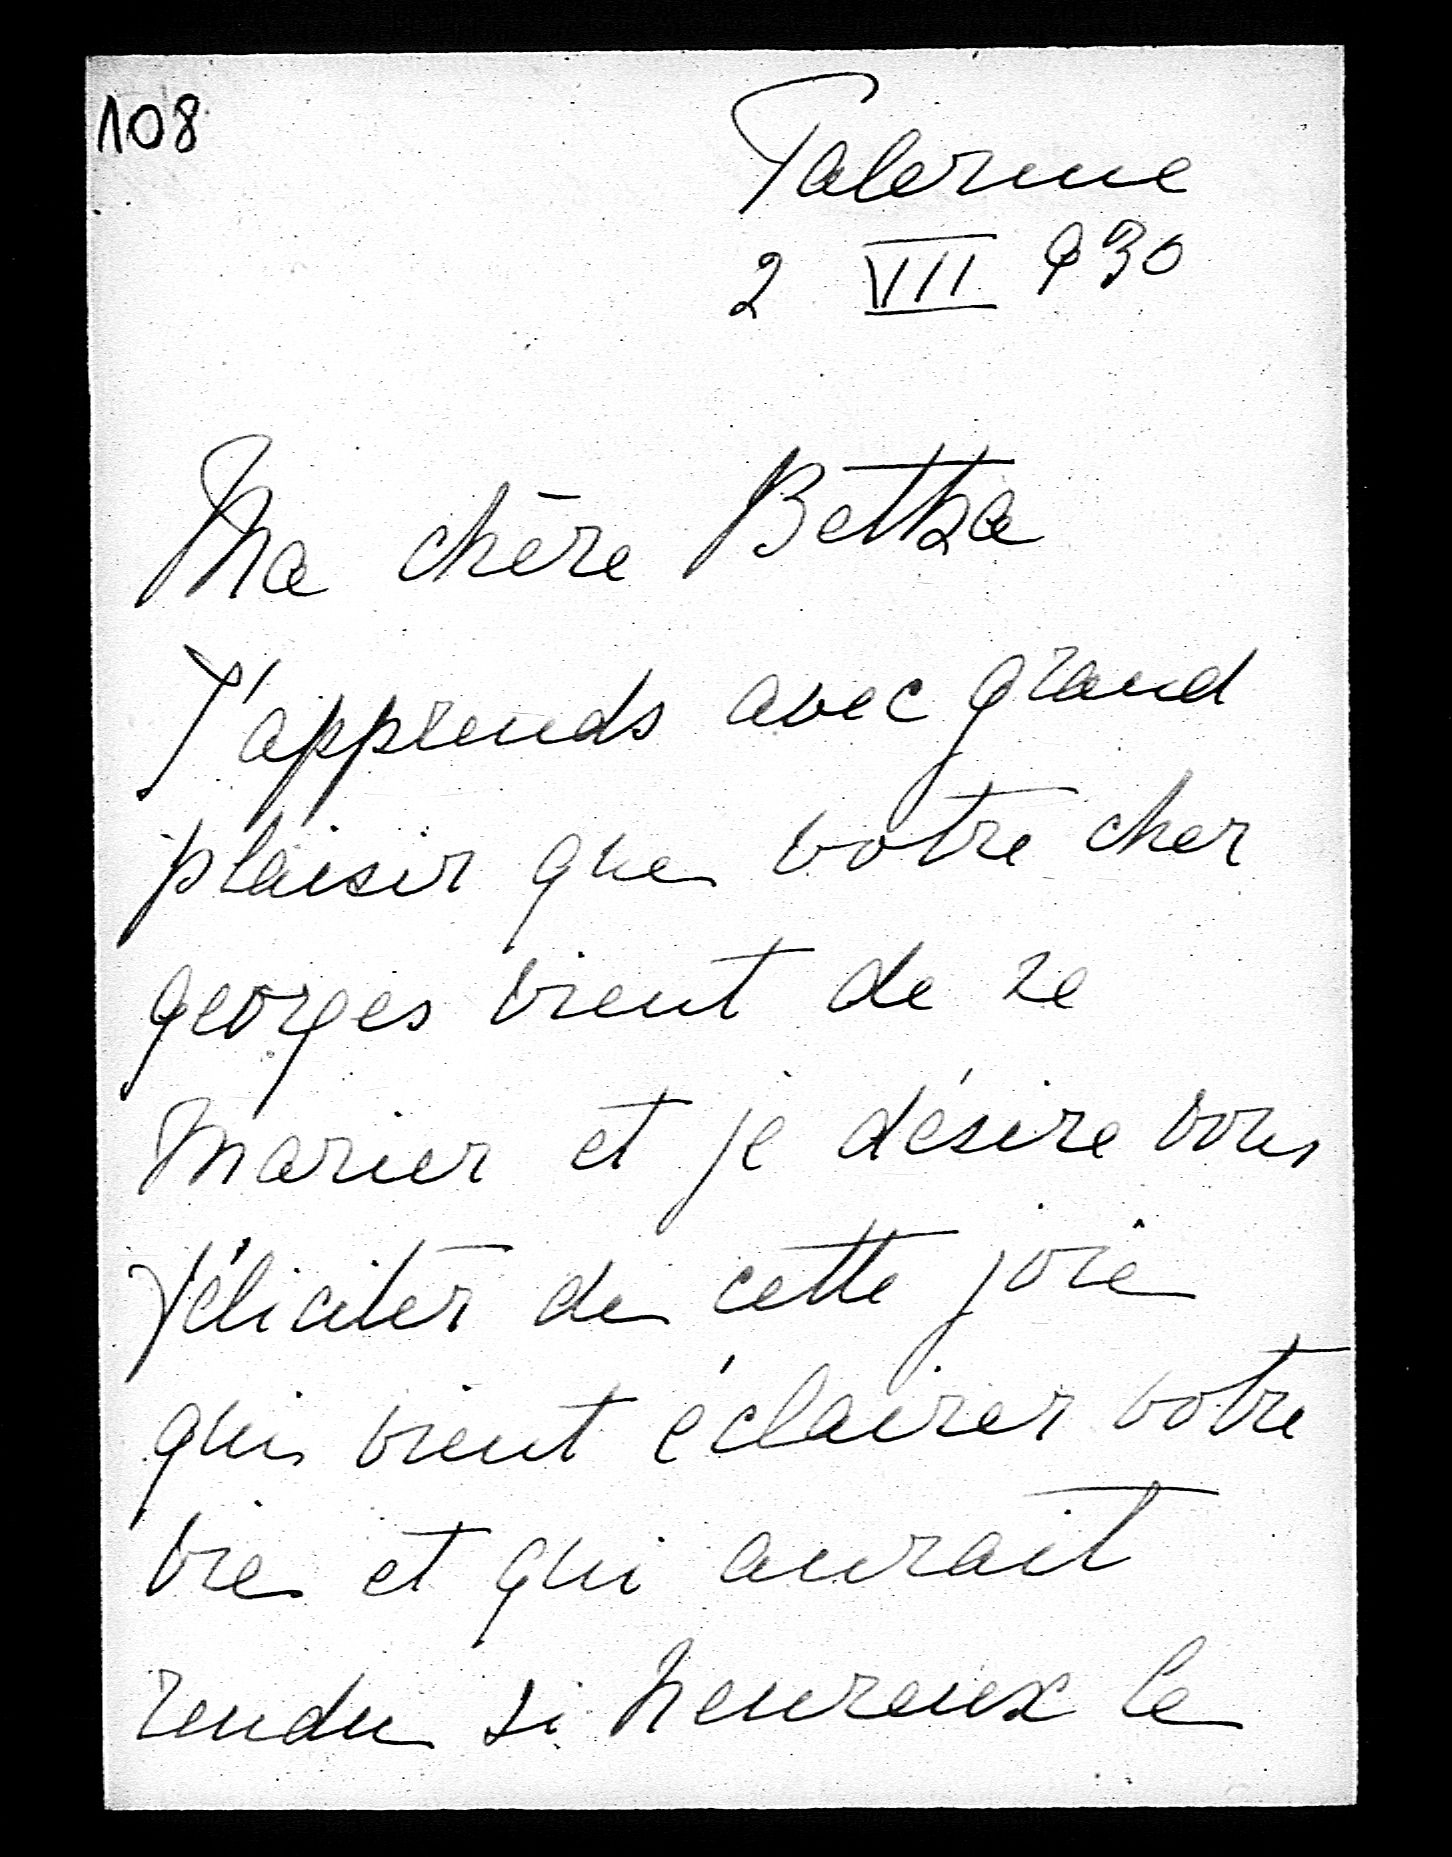 108
Palerme
2 VII 930
Ma chère Betka
J'apprends avec grand
plaisir que votre cher
georges vient de se
marier et je désire vous
féliciter de cette joie
qui vient éclairer votre
vie et qui aurait
rendu si heureux le